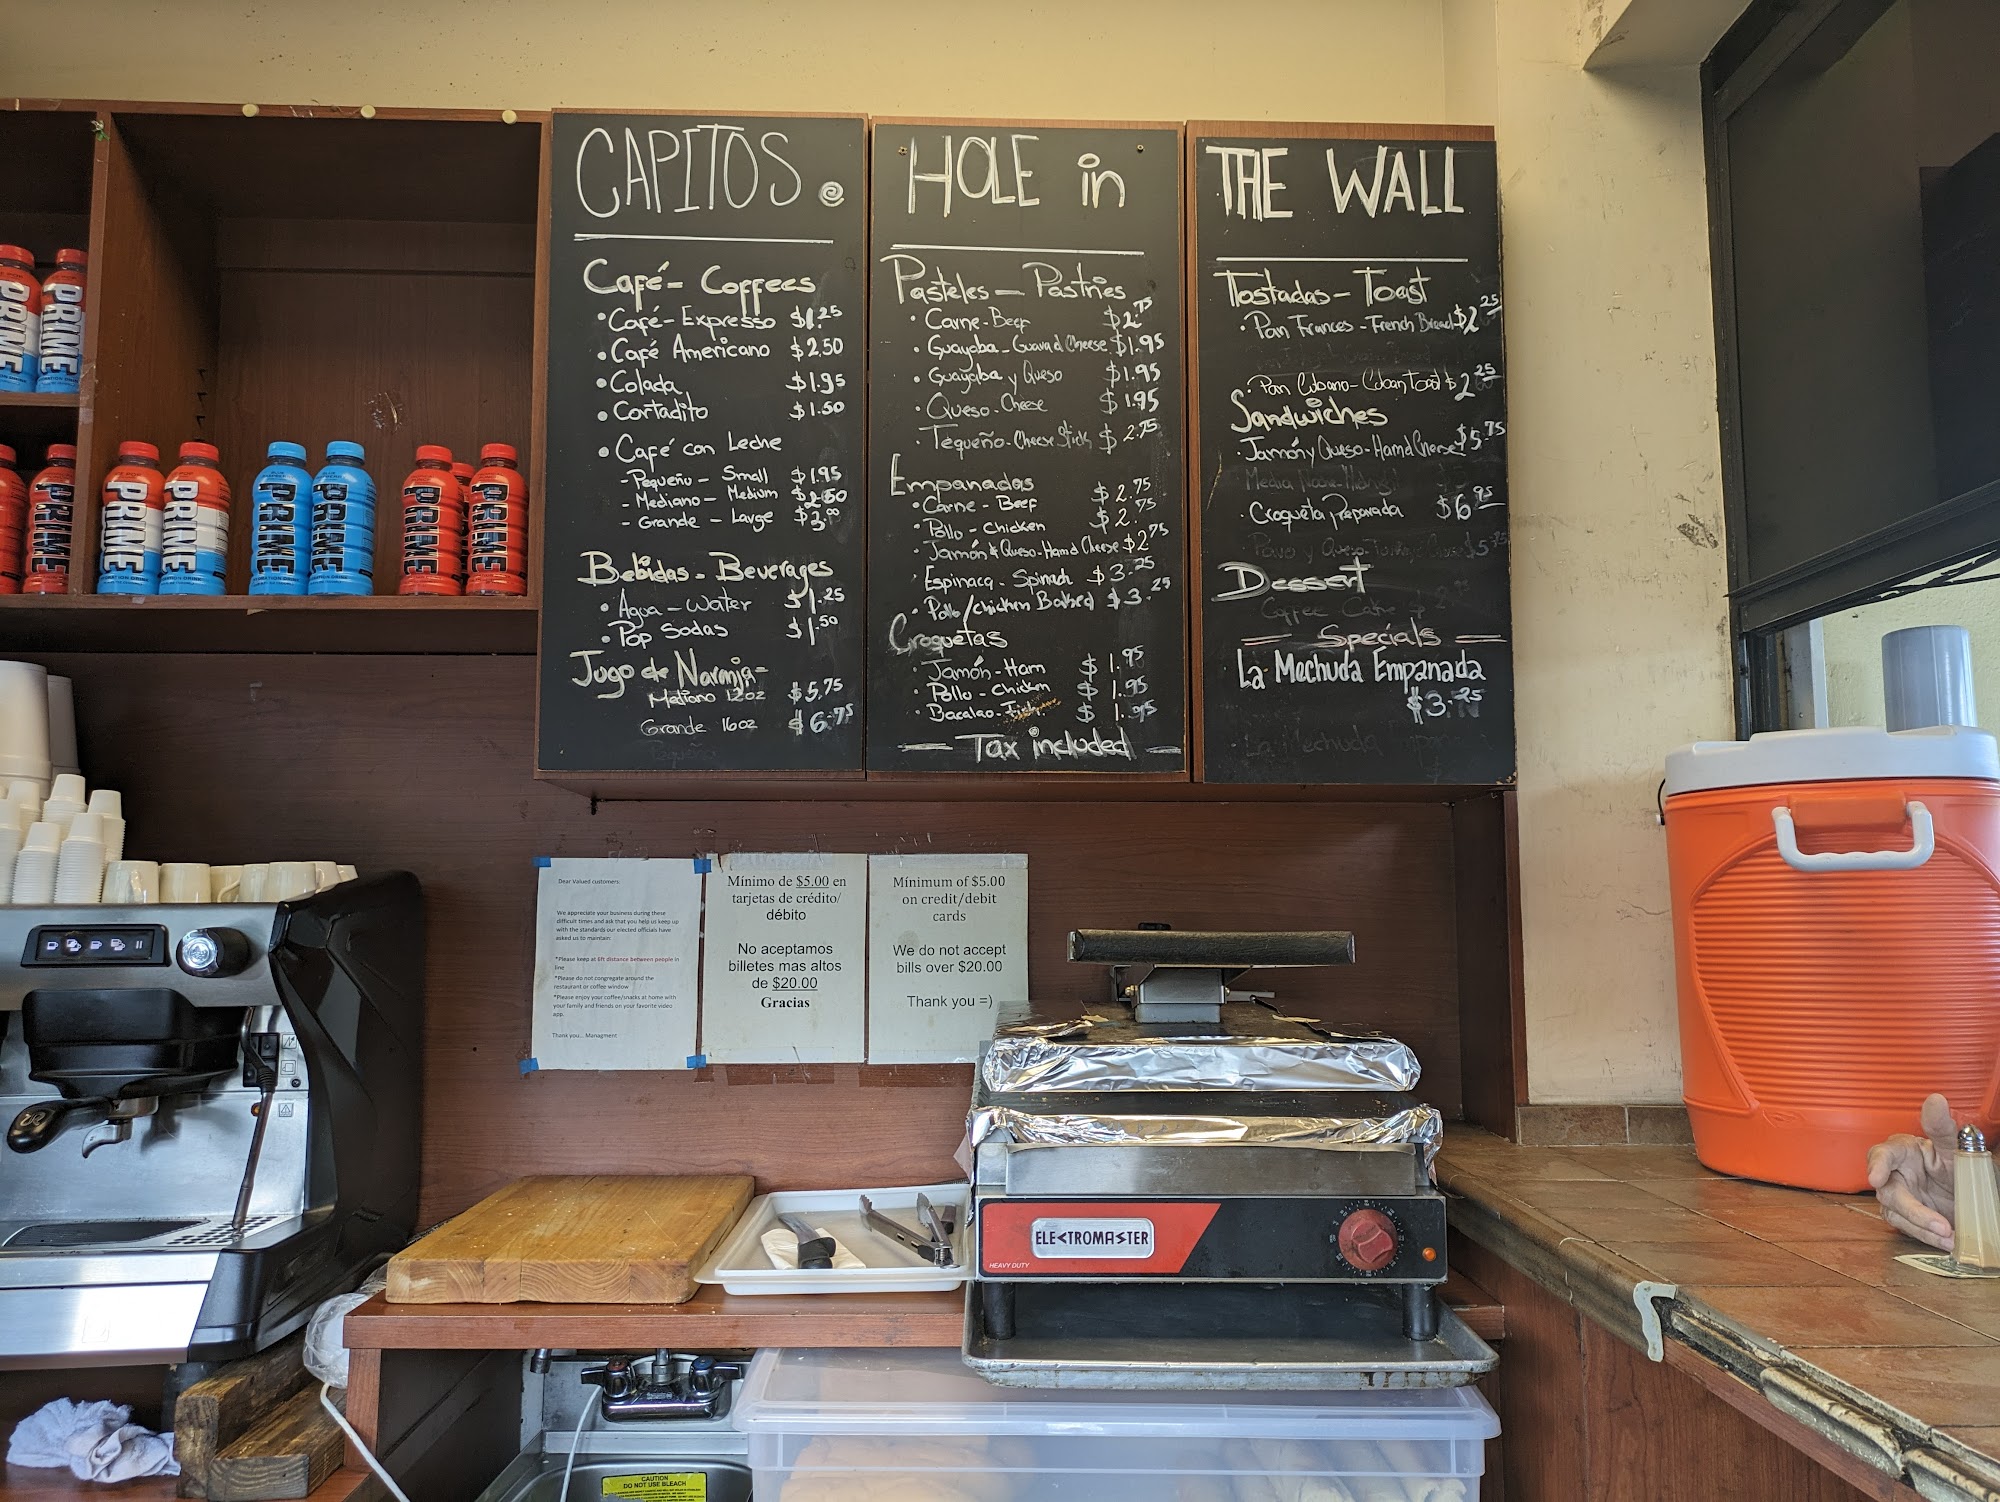 CAPITOS.
Café - Coffees
• Café - Expresso $1.25
• Café Americano $2.50
• Colada $1.95
• Cortadito $1.50
• Café con Leche
- Pequeño - Small $1.95
- Mediano - Medium $2.50
- Grande - Large $3.00
Bebidas - Beverages
• Agua - Water $1.25
• Pop Sodas $1.50
Jugo de Naranja -
Mediano 12oz $5.75
Grande 16oz $6.75
Pequeño
HOLE in
Pasteles - Pastries
• Carne - Beef $2.75
• Guayaba - Guava d Cheese $1.95
• Guayaba y Queso $1.95
• Queso - Cheese $1.95
• Tequeño - Cheese Stick $2.75
Empanadas
• Carne - Beef $2.75
• Pollo - Chicken $2.75
• Jamón & Queso - Ham d Cheese $2.75
Espinaca - Spinach $3.25
• Pollo/chicken Baked $3.25
Croquetas
• Jamón - Ham $1.95
• Pollo - Chicken $1.95
• Bacalao - Fish $1.95
— Tax included —
THE WALL
Tostadas - Toast
• Pan Frances - French Bread $2.25
• Pan Cubano - Cuban Toast $2.25
Sandwiches
• Jamón y Queso - Ham d Cheese $5.75
Media Noche - Midnight
• Croqueta Preparada $6.95
Pavo y Queso
Dessert
Coffee Cake $
Specials
La Mechuda Empanada
$3.25
La Mechuda
Dear Valued customers:
We appreciate your business during these
difficult times and ask that you help us keep up
with the standards our elected officials have
asked us to maintain:
*Please keep at 6ft distance between people in
line
*Please do not congregate around the
restaurant or coffee window
*Please enjoy your coffee/snacks at home with
your family and friends on your favorite video
app.
Thank you... Managment
Mínimo de $5.00 en
tarjetas de crédito/
débito
No aceptamos
billetes mas altos
de $20.00
Gracias
Minimum of $5.00
on credit/debit
cards
We do not accept
bills over $20.00
Thank you =)
PRIME
PRIME
PRIME
PRIME
PRIME
PRIME
PRIME
PRIME
PRIME
ELECTROMASTER
HEAVY DUTY
CAUTION
DO NOT USE BLEACH